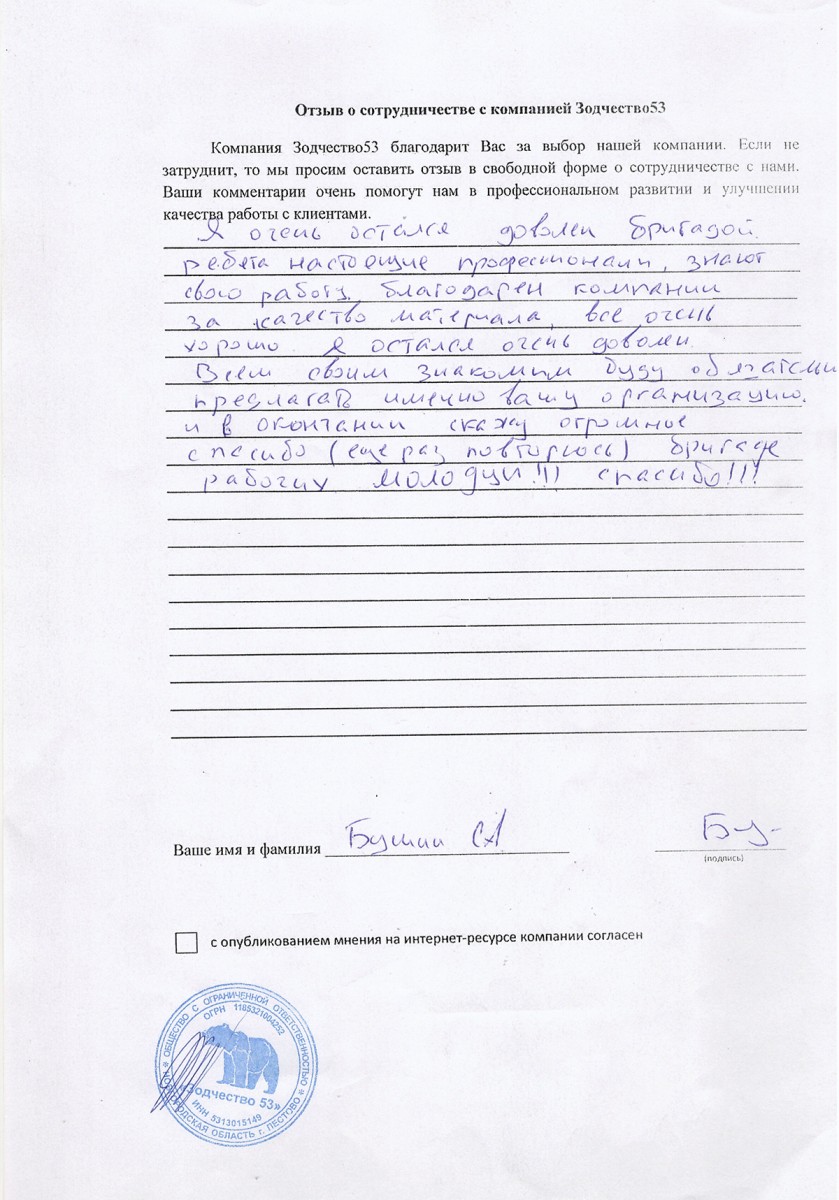 Отзыв о сотрудничестве с компанией Зодчество53
Компания Зодчество53 благодарит Вас за выбор нашей компании. Если не
затруднит, то мы просим оставить отзыв в свободной форме о сотрудничестве с нами.
Ваши комментарии очень помогут нам в профессиональном развитии и улучшении
качества работы с клиентами.
Я очень остался доволен бригадой.
ребята настоящие профессионали, знают
свою работу, благодарен компании
за качество материала, все очень
хорошо. Я остался очень доволен.
Всем своим знакомым буду обязательн
предлагать именно вашу организацию.
и в окончании скажу огромное
спасибо (еще раз повторюсь) бригаде
рабочих молодцы!!! спасибо!!!
Ваше имя и фамилия
СА
Бу-
(подпись)
с опубликованием мнения на интернет-ресурсе компании согласен
ОБЩЕСТВО С ОГРАНИЧЕННОЙ ОТВЕТСТВЕННОСТЬЮ
ОГРН 1185321004252
«Зодчество 53»
ИНН 5313015149
ОБЛАСТЬ г. ПЕСТОВО